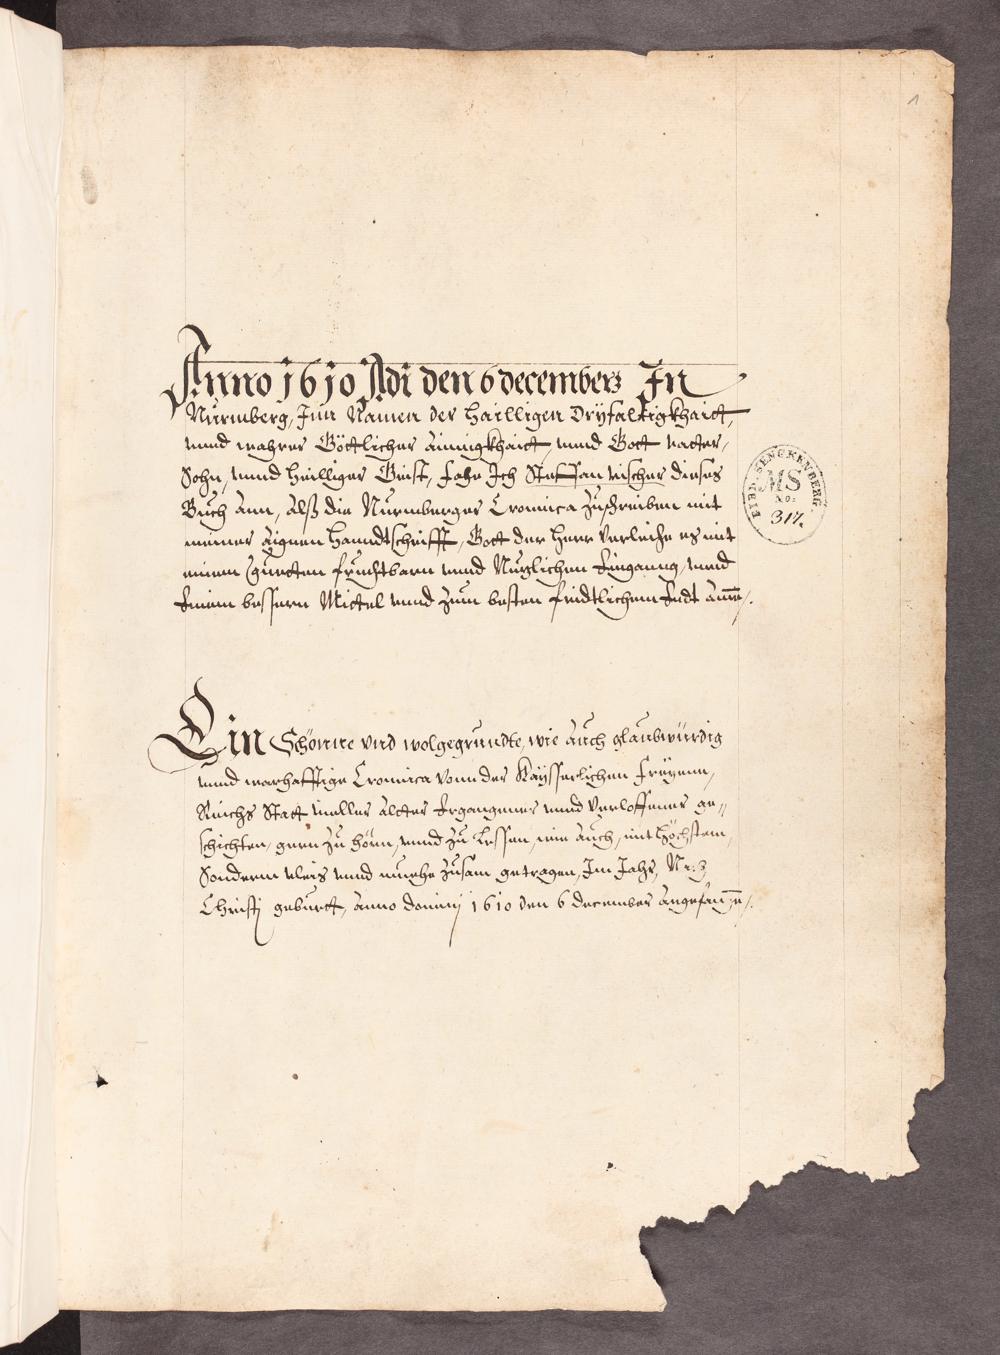 1
Anno 1610 Adi den 6 decembers In
Nürmberg, Inn Namen der Hailligen Dryfaltigkhaitt,
unnd wahrer Göttlicher ainnigkhaitt, unnd Gott vatter,
Sohn, unnd Heilliger Geist, fahe Ich Steffan vischer dieses
Buch ann, alß die Nurmberger Cronnica Zuschreiben mit
meiner aignen Hanndtschrifft, Gott der Herr Verleihe es mit
einem guetten fruchtbarn unnd Nuzlichen Einganng, unnd
Einem bessern Mittel unnd zum besten fridtlichem Endt
BIBL. SENCKENBERG.
MS
No:
317.
Ein Schönne und wolgegrundte, wie auch glaubwürdig
unnd warhafftige Cronnica vonn der Kaysserlichen Freyenn,
Reichs Statt alter Ergangener unnd verloffener ge„
schichten, gern zu hörn, unnd zu Lessen, wie auch, mit höchstem,
Sonderm vleis unnd muehe zusam getragen, Im Jahr,
Christj geburtt, anno dominj 1610 den 6 december angefangen